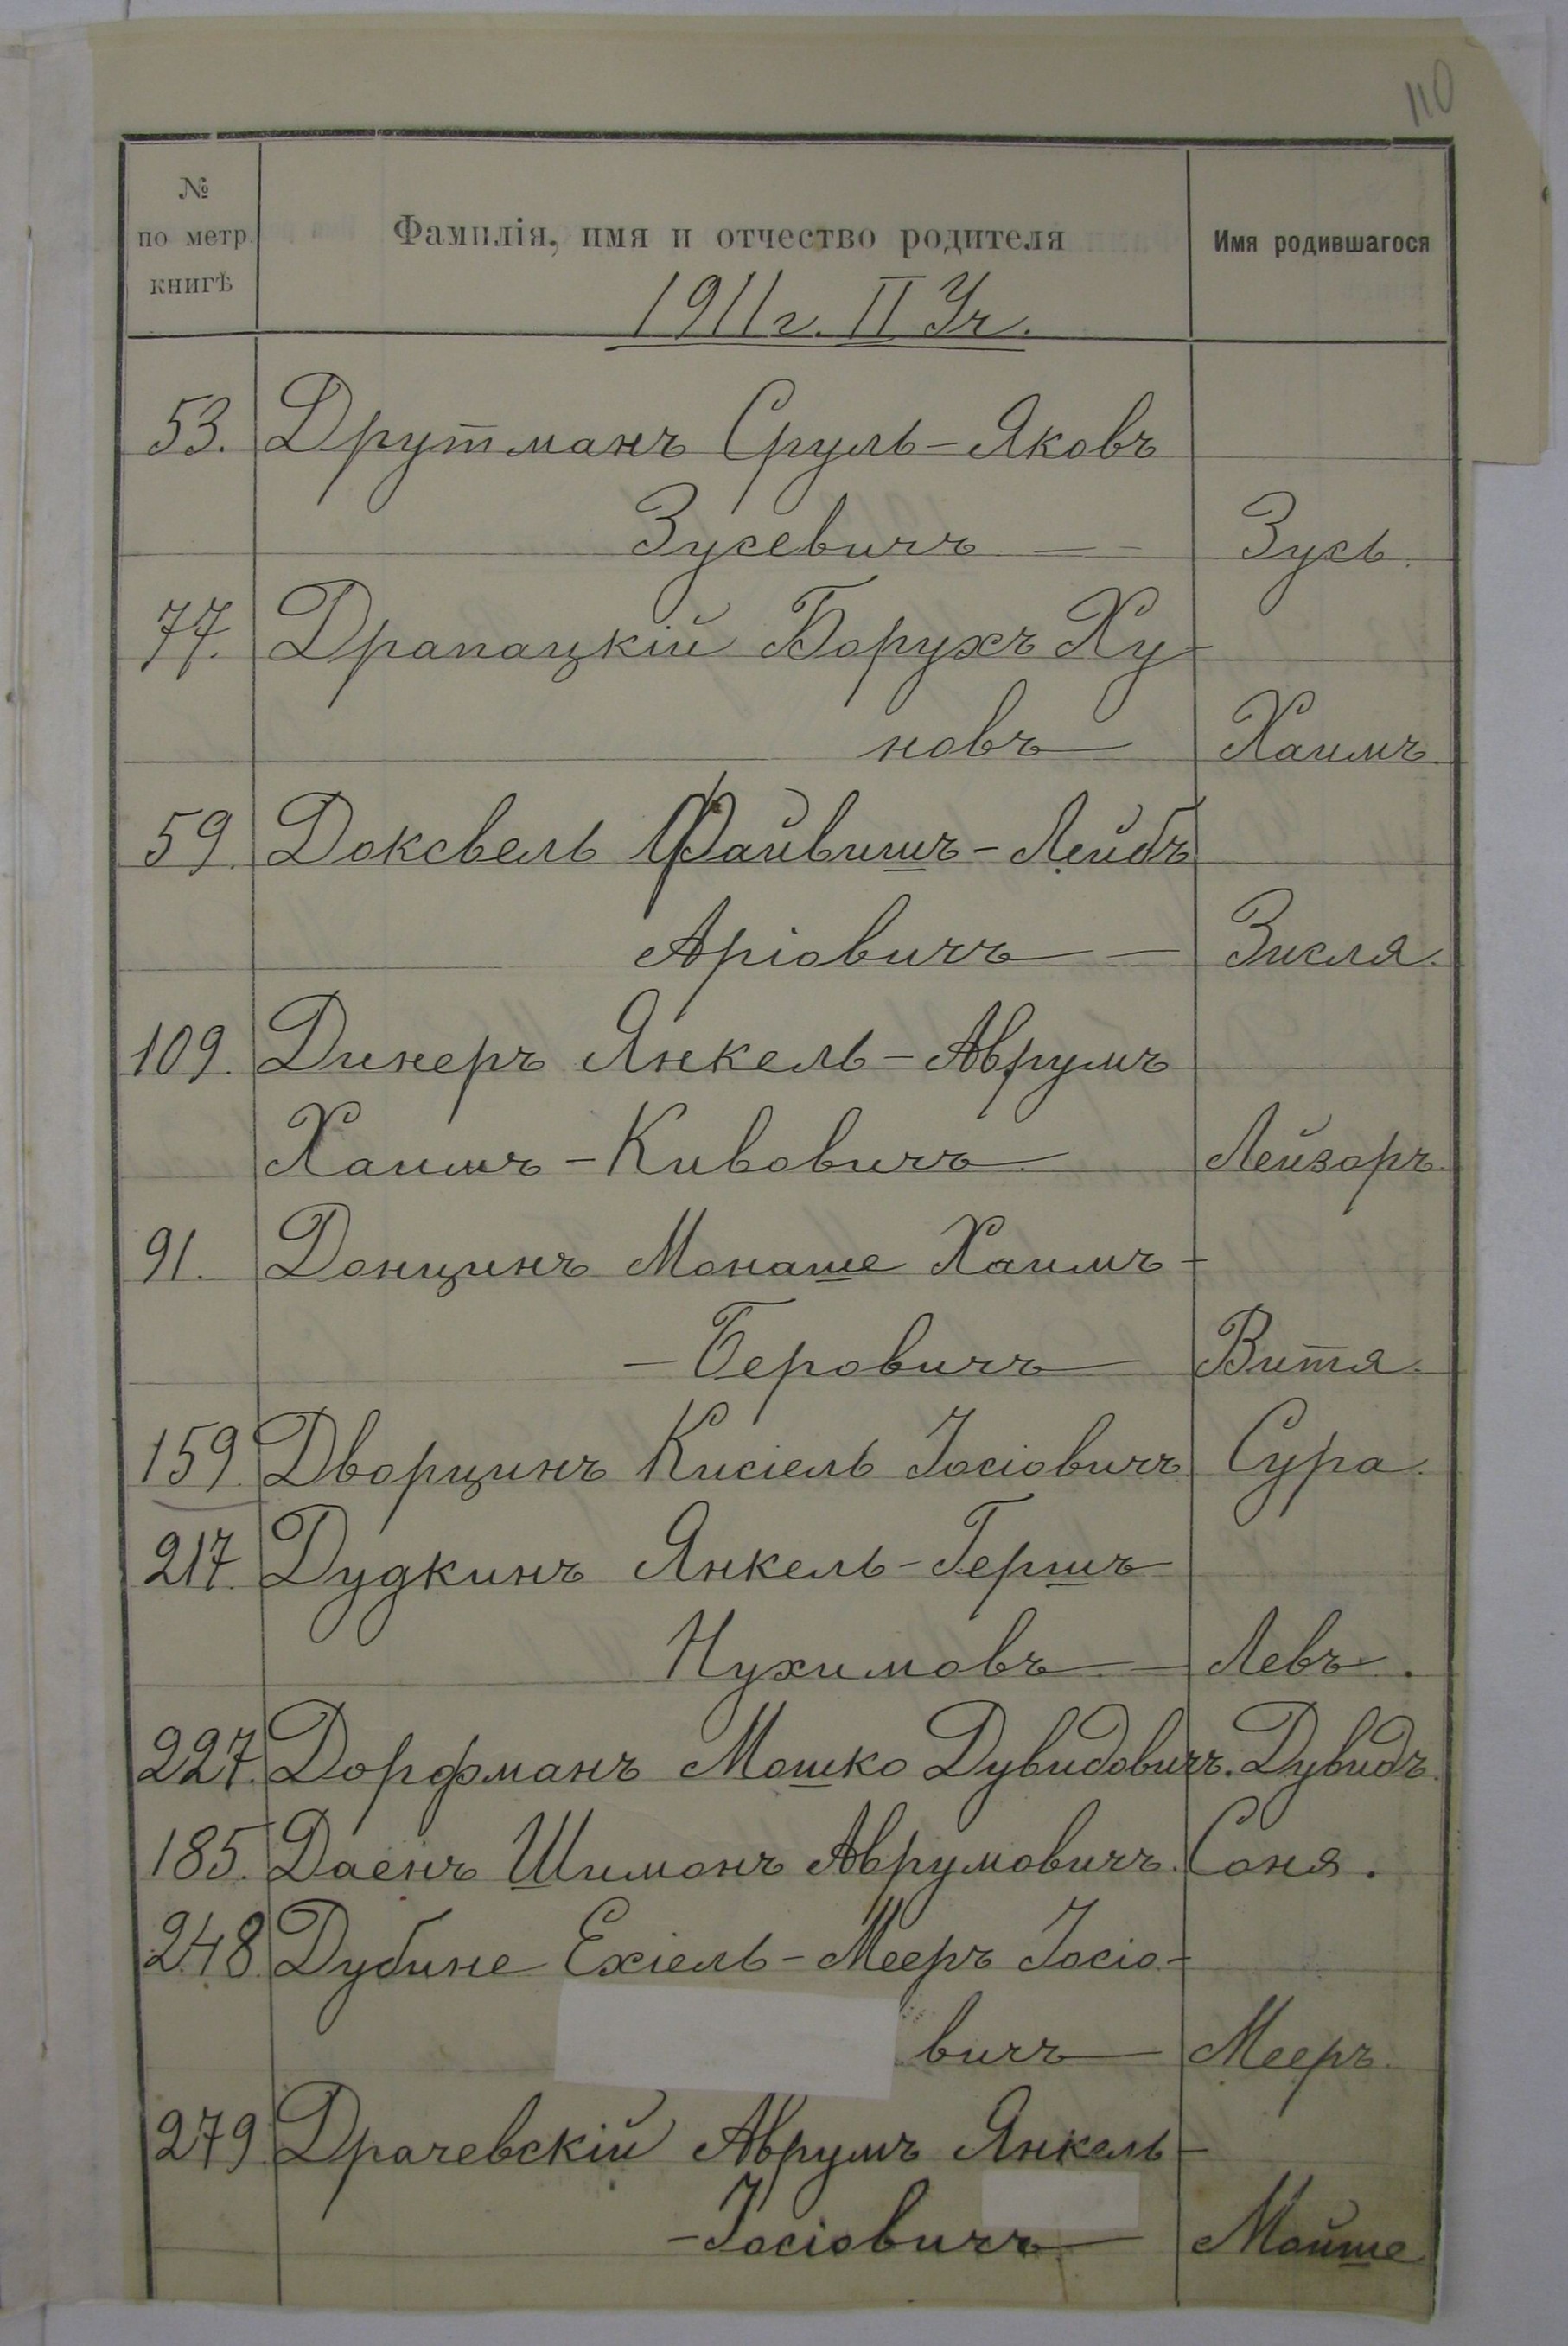 110
№ по метр. книгѣ Фамилія, имя и отчество родителя Имя родившагося
1911 г. II Уч.
53. Друтманъ Сруль-Яковъ
Зусевичъ — Зусь.
77. Драпацкій Борухъ Ху-
новъ — Хаимъ.
59. Доксвель Файвишъ-Лейбъ
Аріовичъ — Зисля.
109. Динеръ Янкель-Аврумъ
Хаимъ-Кивовичъ Лейзоръ.
91. Донцинъ Монаше Хаимъ-
-Беровичъ — Витя.
159. Дворцинъ Кисіель Іосіовичъ Сура.
217. Дудкинъ Янкель-Гершъ
Нухимовъ — Левъ.
227. Дорфманъ Мошко Дувидовичъ. Дувидъ.
185. Даенъ Шимонъ Аврумовичъ. Соня.
248. Дубине Ехіель-Мееръ Іосіо-
вичъ — Мееръ.
279. Драчевскій Аврумъ Янкель-
-Іосіовичъ — Мойше.